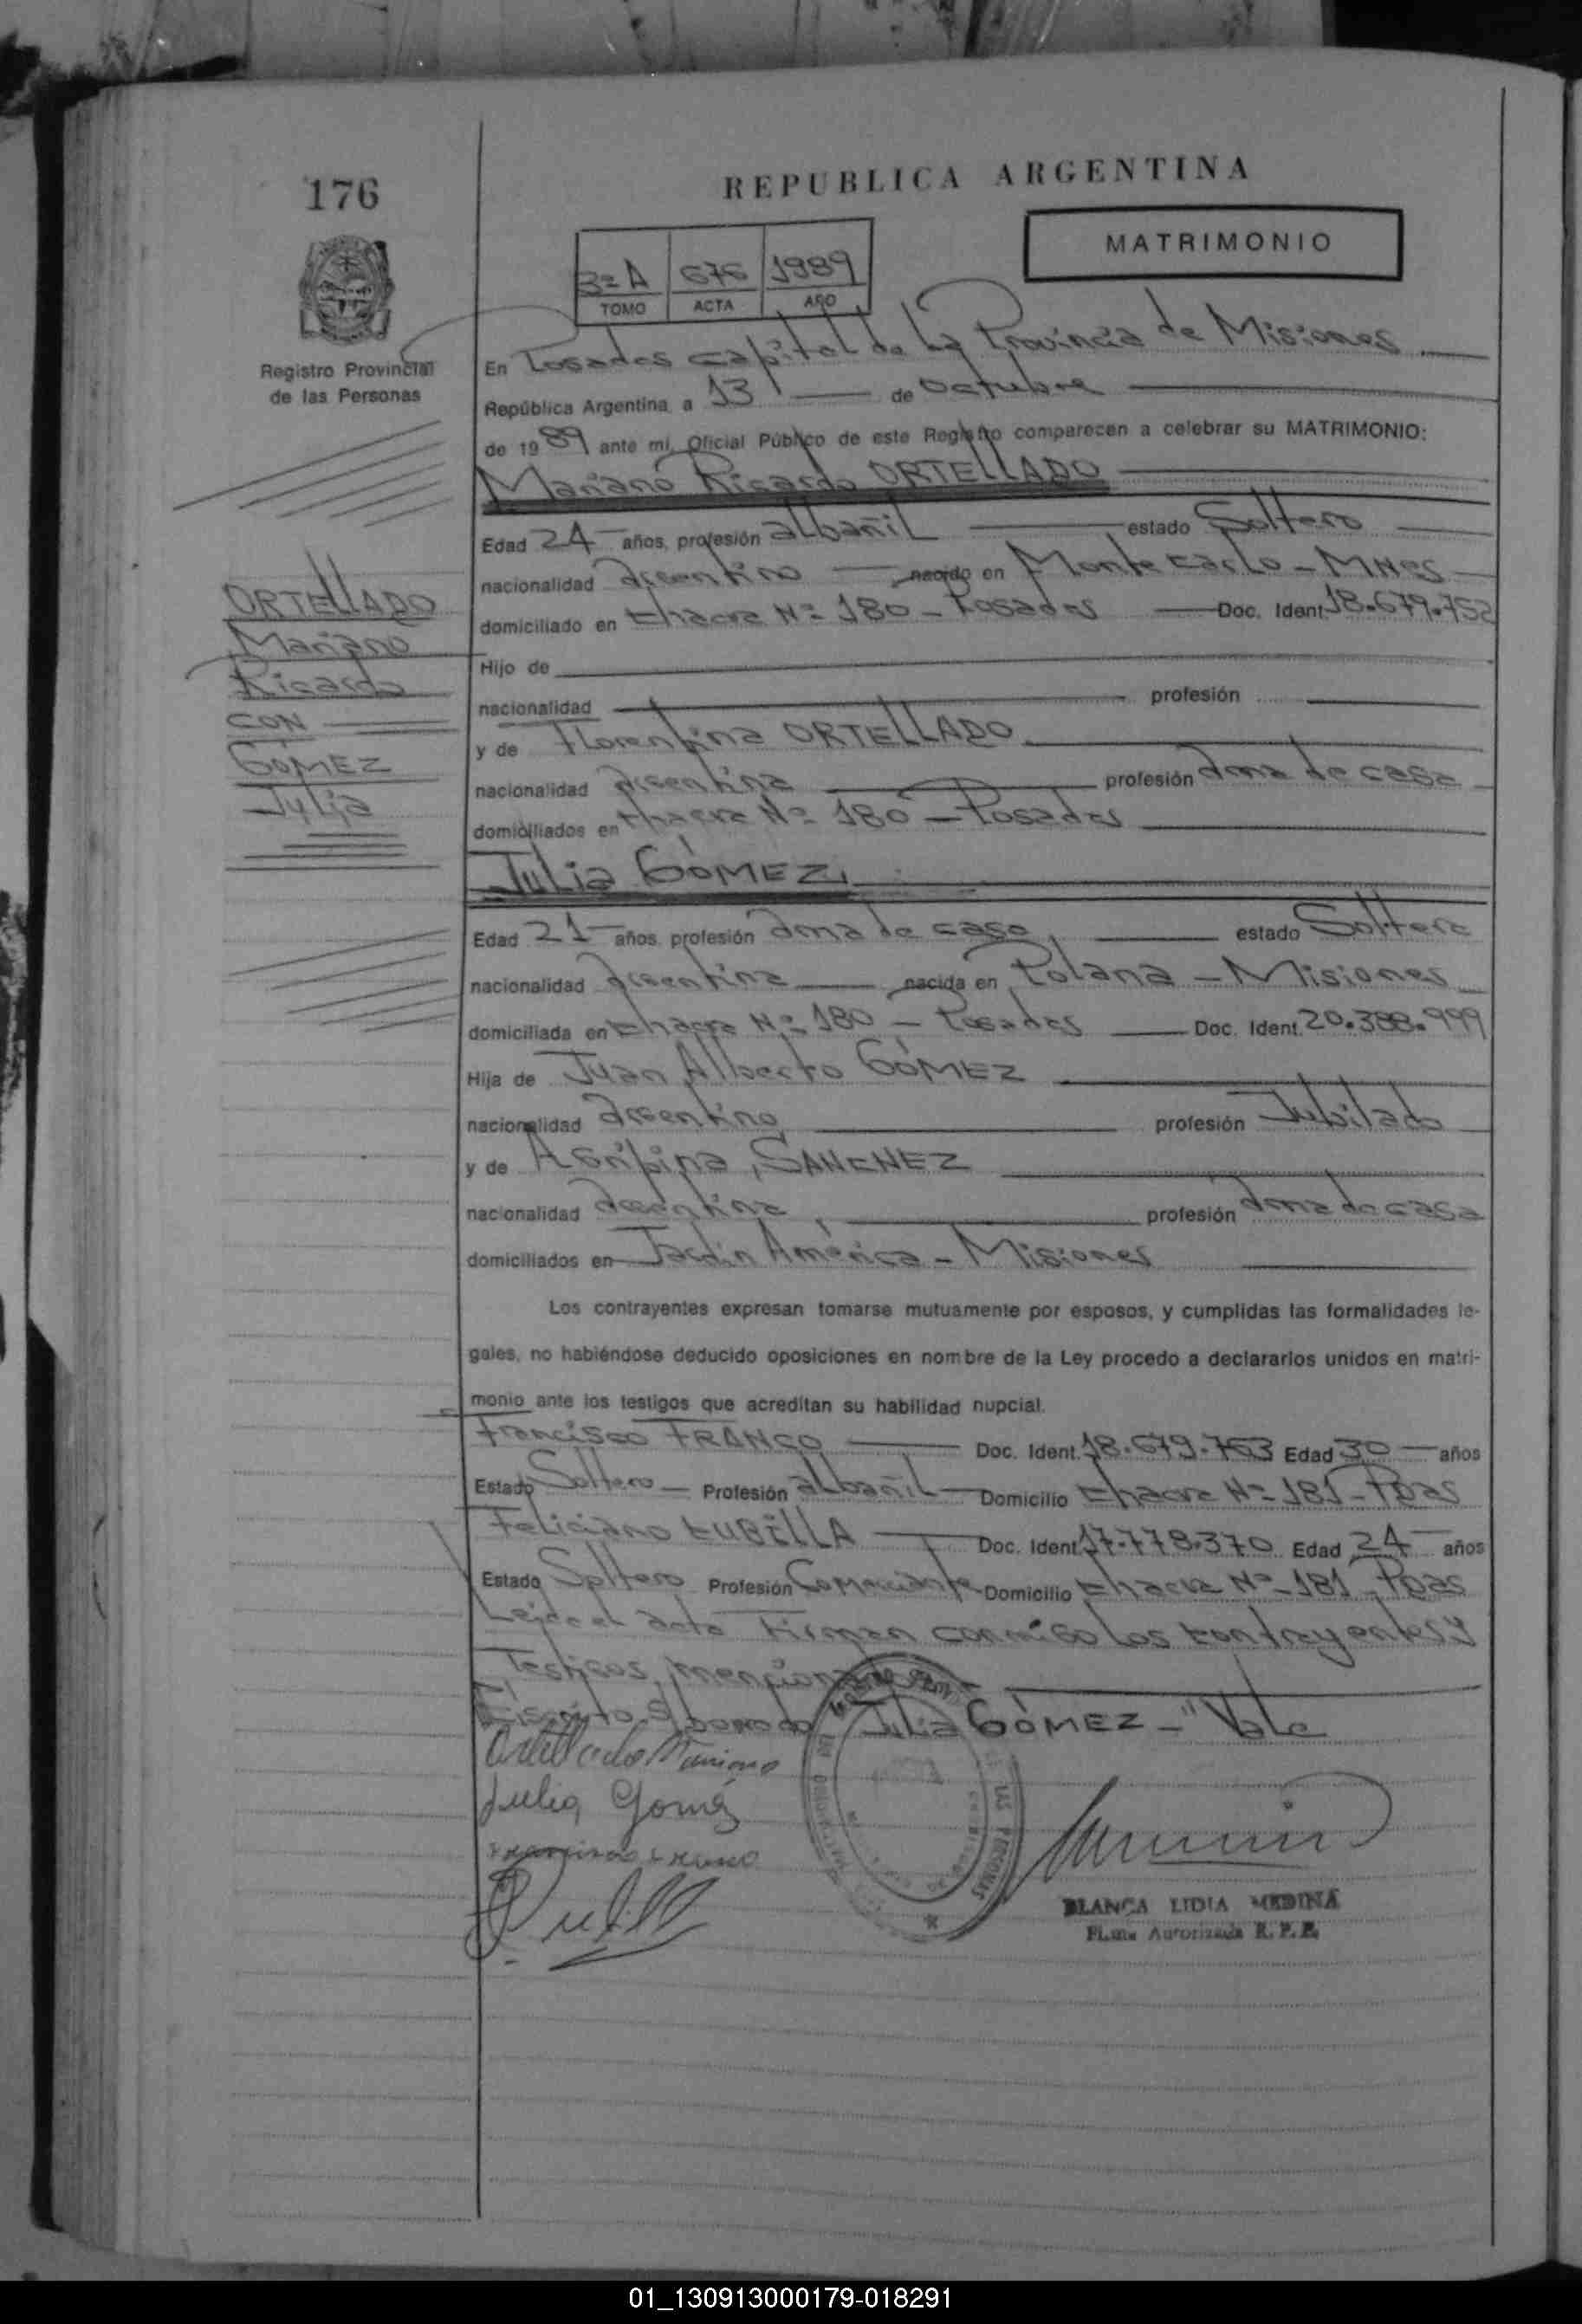 176
REPUBLICA ARGENTINA
MATRIMONIO
3º A 676 1989
TOMO ACTA AÑO
Registro Provincial
de las Personas
En Posadas capital de la Provincia de Misiones
República Argentina, a 13 de octubre
de 1989 ante mí, Oficial Público de este Registro comparecen a celebrar su MATRIMONIO:
Mariano Ricardo ORTELLADO
Edad 24 años, profesión albañil estado Soltero
nacionalidad argentino nacido en Monte Carlo - Mnes
domiciliado en chacra Nº 180 - Posadas Doc. Ident. 18.679.752
Hijo de
nacionalidad profesión
y de Florentina ORTELLADO
nacionalidad argentina profesión ama de casa
domiciliados en chacra Nº 180 - Posadas
ORTELLADO
Mariano
Ricardo
CON
GÓMEZ
Julia
Julia GÓMEZ
Edad 21 años, profesión ama de casa estado Soltera
nacionalidad argentina nacida en Polana - Misiones
domiciliada en chacra Nº 180 - Posadas Doc. Ident. 20.388.999
Hija de Juan Alberto GÓMEZ
nacionalidad argentino profesión Jubilado
y de Agripina SANCHEZ
nacionalidad argentina profesión ama de casa
domiciliados en Jardín América - Misiones
Los contrayentes expresan tomarse mutuamente por esposos, y cumplidas las formalidades le-
gales, no habiéndose deducido oposiciones en nombre de la Ley procedo a declararlos unidos en matri-
monio ante los testigos que acreditan su habilidad nupcial.
Francisco FRANCO Doc. Ident. 18.679.763 Edad 30 años
Estado Soltero Profesión albañil Domicilio chacra Nº 181 - Pdas
Feliciano CUBILLA Doc. Ident. 17.778.370 Edad 24 años
Estado Soltero Profesión Comerciante Domicilio chacra Nº 181 - Pdas
Leída el acta Firman conmigo los contrayentes y
Testigos mencionados
Escrito S/borrado Julia GÓMEZ - "Vale
Ortellado Mariano
Julia Gomez
Francisco Franco
LAS PERSONAS
BLANCA LIDIA MEDINA
Autorizada R. P. P.
01_130913000179-018291